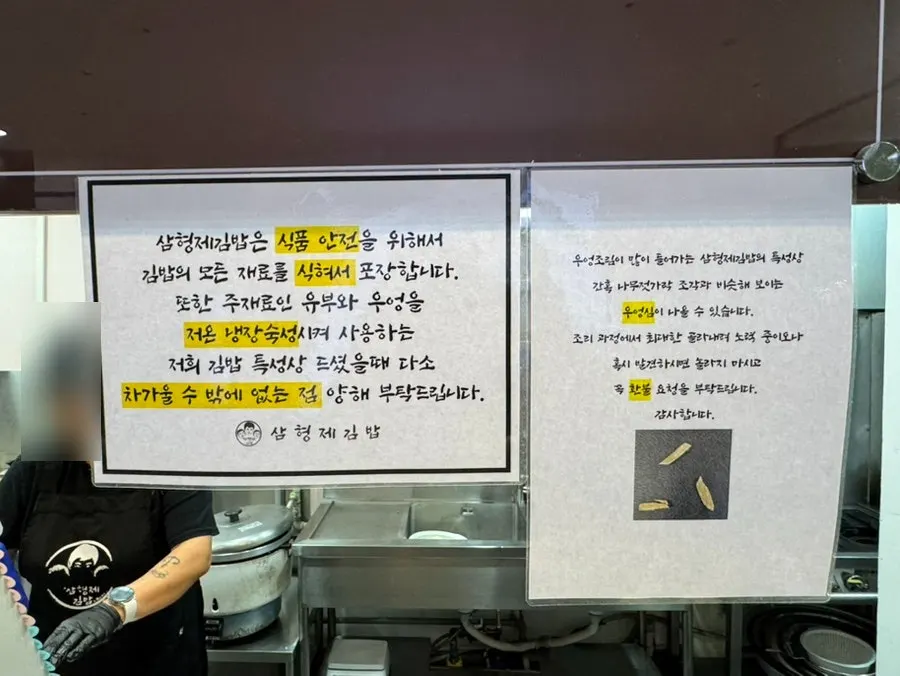 삼형제김밥은 식품 안전을 위해서
김밥의 모든 재료를 식혀서 포장합니다.
또한 주재료인 유부와 우엉을
저온 냉장숙성시켜 사용하는
저희 김밥 특성상 드셨을때 다소
차가울 수 밖에 없는 점 양해 부탁드립니다.
삼형제김밥
우엉조림이 많이 들어가는 삼형제김밥의 특성상
간혹 나무젓가락 조각과 비슷해 보이는
우엉심이 나올 수 있습니다.
조리 과정에서 최대한 골라내려 노력 중이오나
혹시 발견하시면 놀라지 마시고
꼭 환불 요청을 부탁드립니다.
감사합니다.
삼형제
김밥